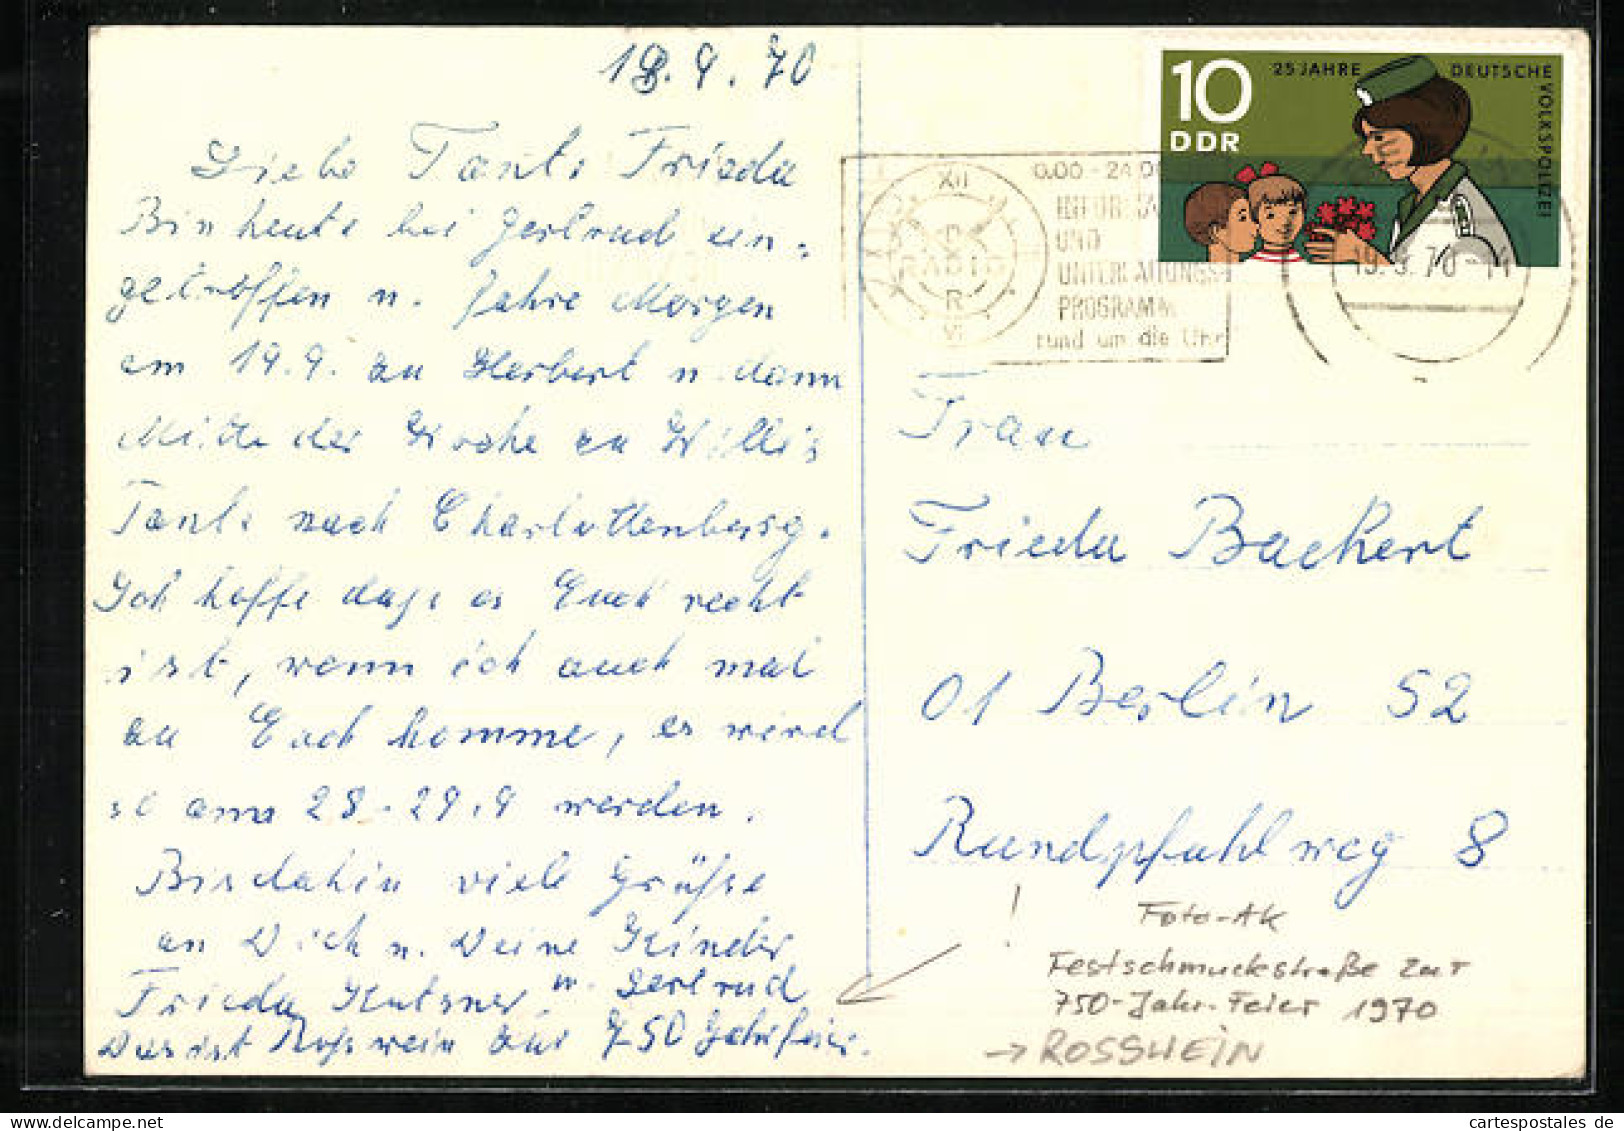 18.9.70
Liebe Tante Frieda
Bin heute bei Gertrud ein-
getroffen u. fahre Morgen
am 19.9. zu Herbert u. dann
Mitte der Woche zu Willis
Tante nach Charlottenberg.
Ich hoffe dass es Euch recht
ist, wenn ich auch mal
zu Euch komme, es wird
so am 28-29.9 werden.
Bis dahin viele Grüße
an Dich u. Deine Kinder
Frieda u. Gertrud
Das ist Rosswein zur 750 Jahrfeier.
10
DDR
25 JAHRE DEUTSCHE VOLKSPOLIZEI
XII
RADIO
DDR
VI
0.00 - 24.00
INFORMATIONS
UND
UNTERHALTUNGS-
PROGRAMM
rund um die Uhr
19.9.70-14
Frau
Frieda Backert
01 Berlin 52
Rundpfahlweg 8
!
Foto-AK
Festschmuckstraße zur
750-Jahr-Feier 1970
→ ROSSWEIN
cartespostales de